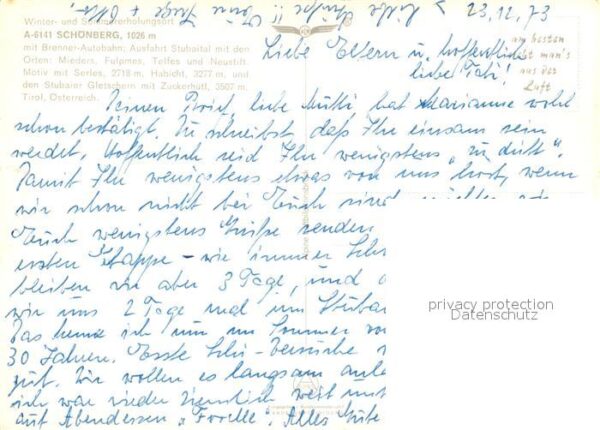 Winter- und Sommererholungsort
A-6141 SCHÖNBERG, 1026 m
mit Brenner-Autobahn; Ausfahrt Stubaital mit den
Orten: Mieders, Fulpmes, Telfes und Neustift.
Motiv mit Serles, 2718 m, Habicht, 3277 m, und
den Stubaier Gletschern mit Zuckerhütl, 3507 m,
Tirol, Österreich.
23.12.73
Liebe Eltern u. hoffentlich
am besten
man's
aus der
Luft
Deinen Brief, liebe Mutti hat Marianne wohl
schon bestätigt. Du schreibst daß Ihr einsam sein
werdet. Hoffentlich seid Ihr wenigstens „zu dritt".
Damit Ihr wenigstens etwas von uns hört, wenn
wir schon nicht bei Euch sind
Euch wenigstens Grüße senden
ersten Etappe - wie immer
bleiben wir aber 3 Tage, und
wir uns 2 Tage mal im Stubai
Das kenne ich nur im Sommer vor
30 Jahren. Erste Schi-Versuche
gut. Wir wollen es langsam
ich war wieder ziemlich weit
auf Abendessen „Forelle". Alles Gute
privacy protection
Datenschutz